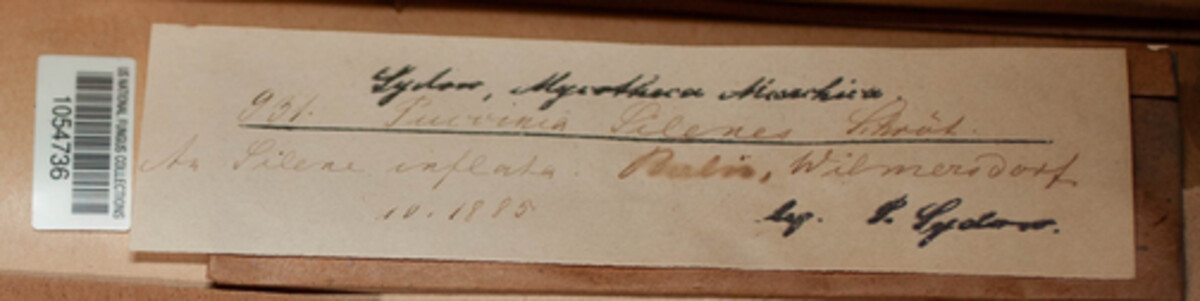 US NATIONAL FUNGUS COLLECTIONS
1054736
Sydow, Mycotheca Marchica.
951. Puccinia Silenes Schröt.
An Silene inflata. Berlin, Wilmersdorf
10. 1885
leg. P. Sydow.